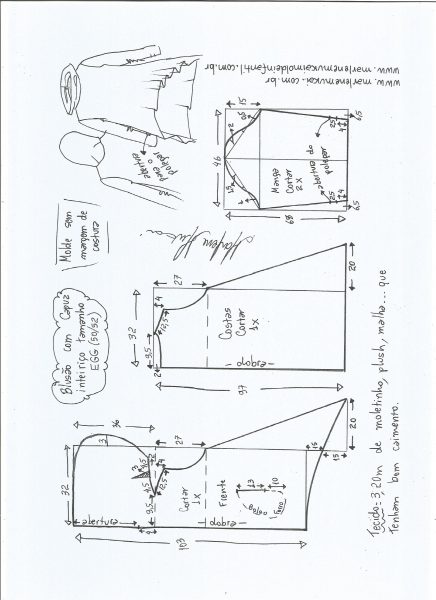 Blusão com Capuz
inteiriço tamanho
EGG (50/52)
Molde sem
margem de
costura
abertura
para o
polegar
www.marlenemukai.com.br
www.marlenemukaimoldeinfantil.com.br
103
32
emenda
36
3
9,5
12,5
27
Cortar
1x
Frente
dobra
13
10
15
15
20
97
32
2
9,5
4
12,5
27
Costas
Cortar
1x
dobra
20
46
15
Manga
Cortar
2x
abertura do
polegar
25
4
6,5
25
4
6,5
68
Tecido = 3,20m de moletinho, plush, malha... que
Tenham bom caimento.